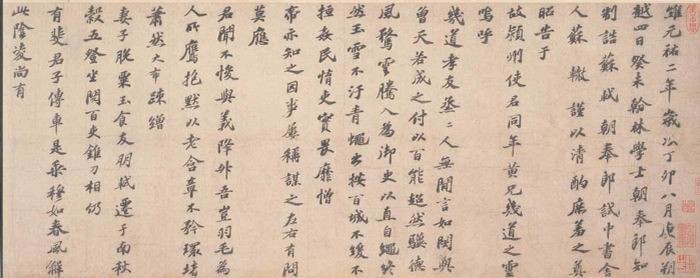 維元祐二年歲次丁卯八月庚辰朔
越四日癸未翰林學士朝奉郎知
制誥蘇軾朝奉郎試中書舍
人蘇轍謹以清酌庶羞之奠
昭告于
故潁州使君同年黃兄幾道之靈
嗚呼
幾道孝友烝烝人無間言如閔與
曾天若成之付以百能超然驥德
風騖雲騰入為御史以直自繩終
然玉雪不汙青蠅出按百城不緩不
姦民惰吏實畏靡憎
帝亦知之因事屢稱謀之左右有問
莫應
君聞不悛與義降升吾豈羽毛為
人所鷹抱默以老含章不矜環堵
蕭然大布疎繒
妻子脫粟玉食友朋軾遷于南秋
穀五登坐閱百吏錐刀相仍
有斐君子傳車是乘穆如春風解
此陰凌尚有